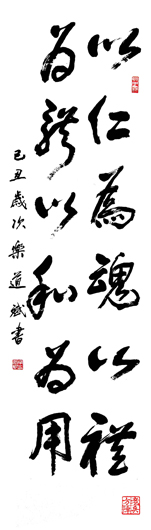 以仁為魂以禮
为體以和为用
己丑歲次樂道斌書